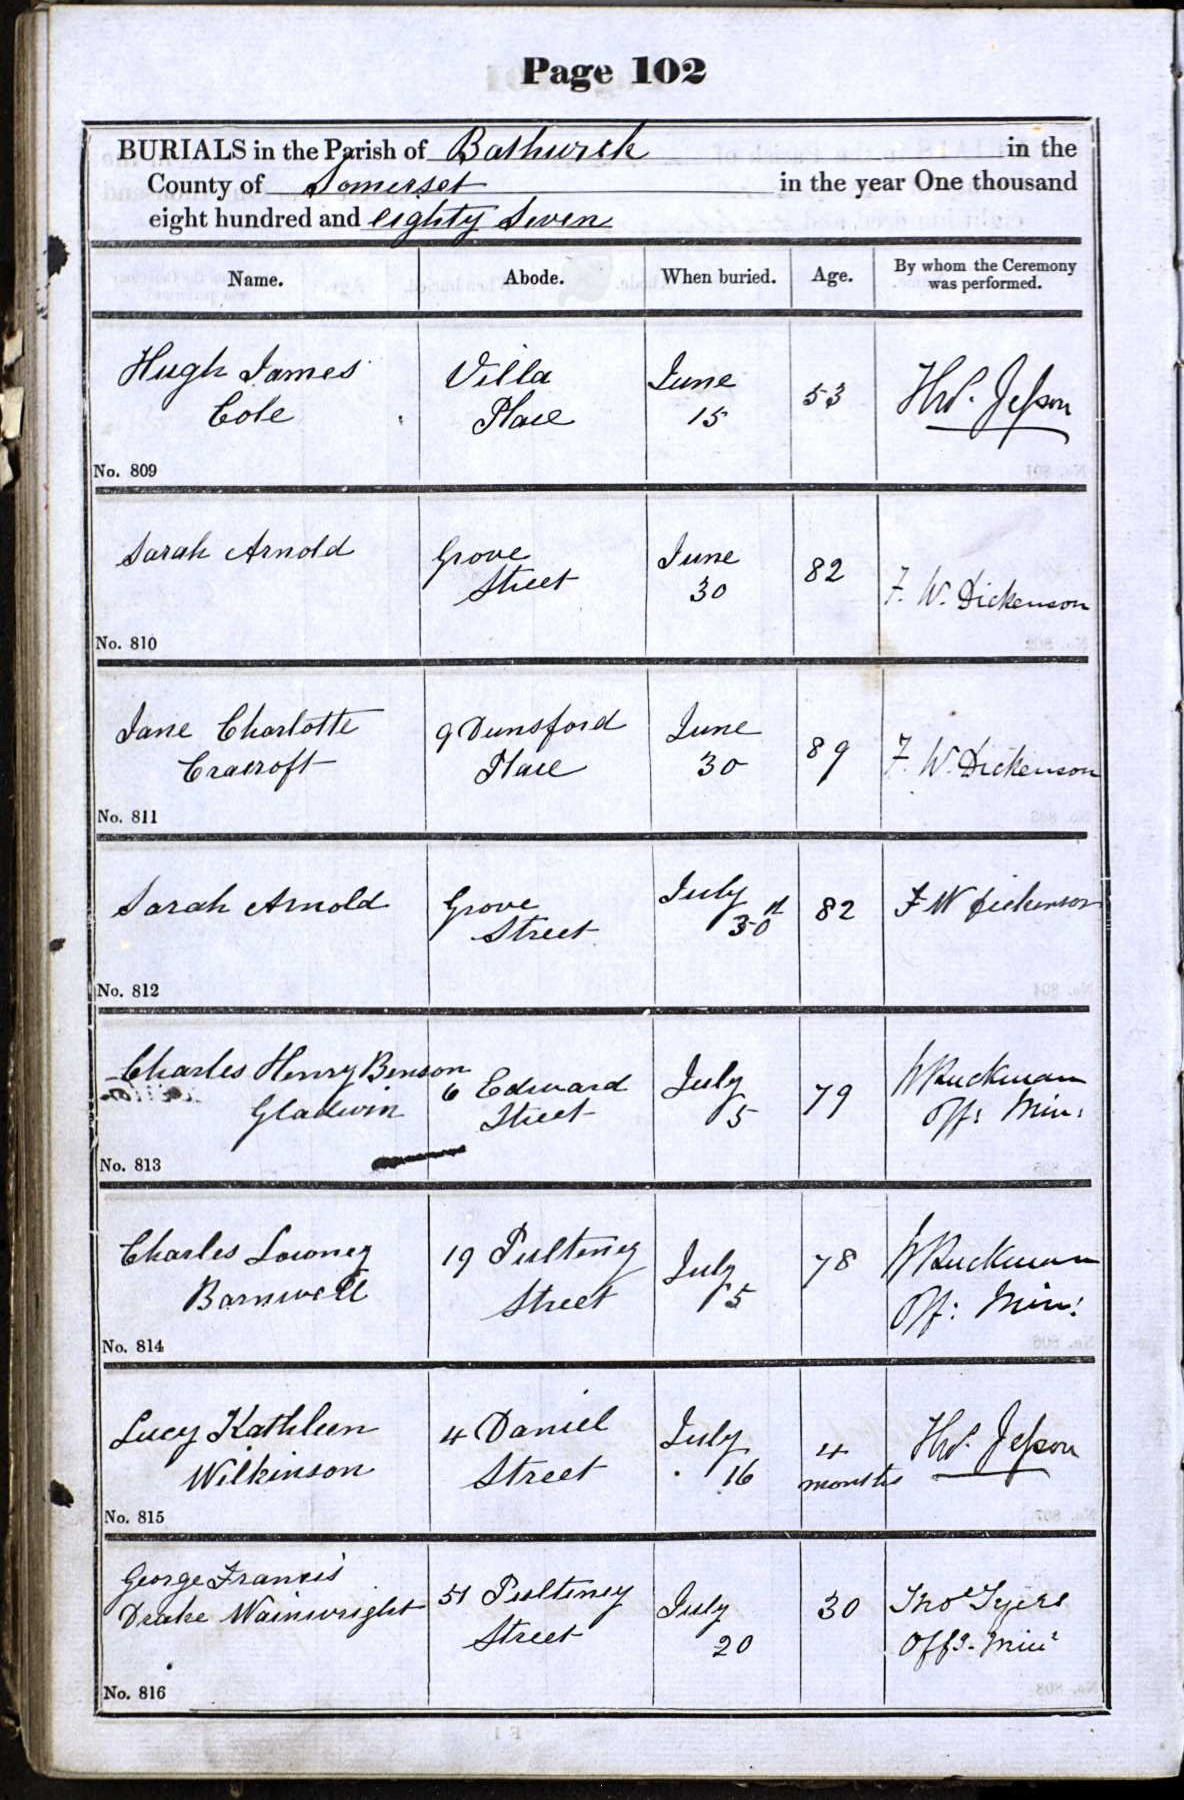 Page 102
BURIALS in the Parish of Bathwick in the
County of Somerset in the year One thousand
eight hundred and eighty Seven
Name. Abode. When buried. Age. By whom the Ceremony
was performed.
Hugh James Villa June 53 Thos. Jesson
Cole Place 15
No. 809
Sarah Arnold Grove June 82 F. W. Dickenson
Street 30
No. 810
Jane Charlotte 9 Dunsford June 89 F. W. Dickenson
Cracroft Place 30
No. 811
Sarah Arnold Grove July 82 F W Dickenson
Street 30
No. 812
Charles Henry Benson 6 Edward July 79 W Ruckman
Gladwin Street 5 Off: Min:
No. 813
Charles Lowney 19 Pulteney July 78 W Ruckman
Barnwell Street 5 Off: Min:
No. 814
Lucy Kathleen 4 Daniel July 4 Thos. Jesson
Wilkinson Street 16 months
No. 815
George Francis 51 Pulteney July 30 Thos Tyers
Drake Wainwright Street 20 Offg. Minr
No. 816